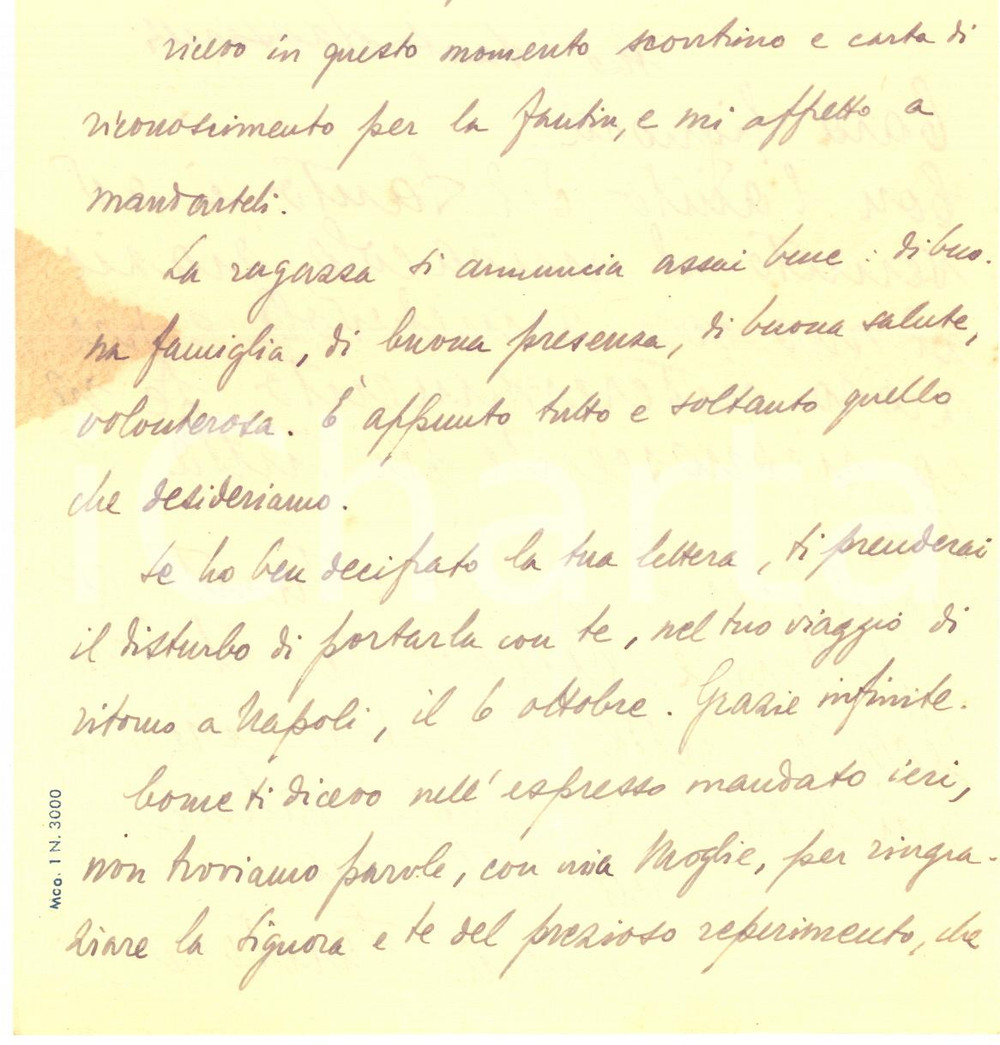 ricevo in questo momento scontrino e carta di
riconoscimento per la Fantin, e mi affretto a
mandarteli.
La ragazza si annuncia assai bene : di buo-
na famiglia, di buona presenza, di buona salute,
volonterosa. È appunto tutto e soltanto quello
che desideriamo.
Se ho ben decifrato la tua lettera, ti prenderai
il disturbo di portarla con te, nel tuo viaggio di
ritorno a Napoli, il 6 ottobre. Grazie infinite.
Come ti dicevo nell'espresso mandato ieri,
non troviamo parole, con mia Moglie, per ringra-
ziare la Signora e te del prezioso reperimento, che
Mco. 1 N. 3000
iCharta